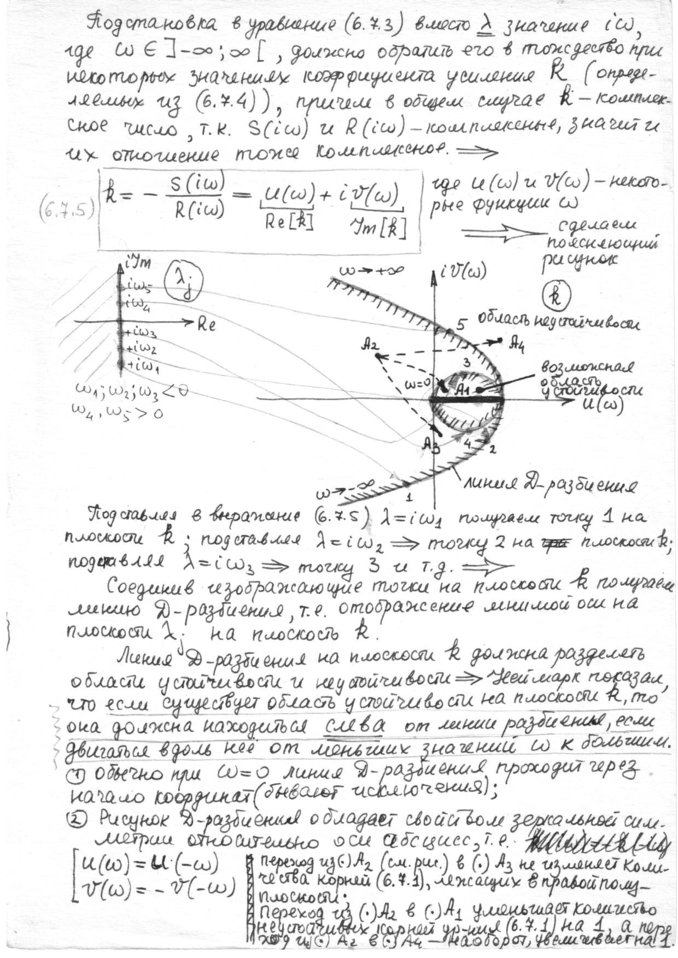 Подстановка в уравнение (6.7.3) вместо λ значение iω,
где ω ∈ ]-∞; ∞[, должно обратить его в тождество при
некоторых значениях коэффициента усиления k (опреде-
ляемых из (6.7.4)), причем в общем случае k – комплек-
сное число, т.к. S(iω) и R(iω) – комплексные, значит и
их отношение тоже комплексное. ⟹
(6.7.5) k = - S(iω)/R(iω) = U(ω) + i V(ω)
Re[k] Im[k]
где U(ω) и V(ω) – некото-
рые функции ω
⟹ сделаем
поясняющий
рисунок
iJm
iω₅
iω₄
iω₃
iω₂
iω₁
Re
λj
ω₁; ω₂; ω₃ < 0
ω₄, ω₅ > 0
ω→+∞
iV(ω)
k
область неустойчивости
5
A₂
A₄
3
ω=0
A₁
возможная
область
устойчивости
U(ω)
A₃
4
2
1
ω→-∞
линия Д-разбиения
Подставляя в выражение (6.7.5) λ=iω₁ получаем точку 1 на
плоскости k; подставляя λ=iω₂ ⟹ точку 2 на плоскости k;
подставляя λ=iω₃ ⟹ точку 3 и т.д. ⟹
Соединив изображающие точки на плоскости k получаем
линию Д-разбиения, т.е. отображение мнимой оси на
плоскости λj на плоскость k.
Линия Д-разбиения на плоскости k должна разделять
области устойчивости и неустойчивости ⟹ Неймарк показал,
что если существует область устойчивости на плоскости k, то
она должна находиться слева от линии разбиения, если
двигаться вдоль неё от меньших значений ω к большим.
① Обычно при ω=0 линия Д-разбиения проходит через
начало координат (бывают исключения);
② Рисунок Д-разбиения обладает свойством зеркальной сим-
метрии относительно оси абсцисс, т.е.
[U(ω) = U(-ω)
V(ω) = - V(-ω)
Переход из (·) A₂ (см. рис.) в (·) A₃ не изменяет коли-
чества корней (6.7.1), лежащих в правой полу-
плоскости;
Переход из (·) A₂ в (·) A₁ уменьшает количество
неустойчивых корней ур-ния (6.7.1) на 1, а пере-
ход из (·) A₂ в (·) A₄ – наоборот, увеличивает на 1.